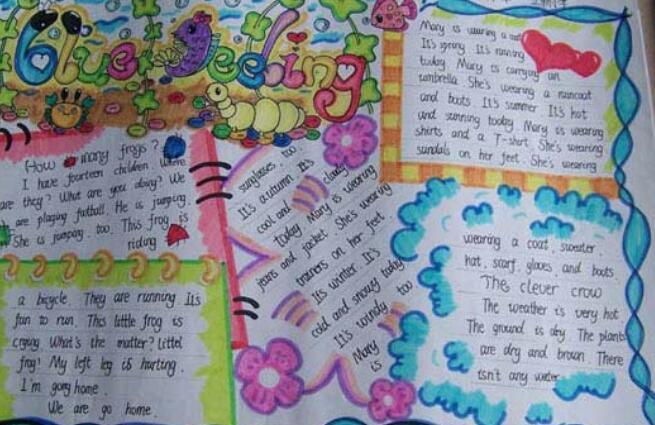 Blue Feeling
How many frogs?
I have fourteen children. Where
are they? What are you doing? We
are playing football. He is jumping.
She is jumping. too. This frog is
riding
a bicycle. They are running It's
fun to run. This little frog is
crying What's the matter? Littel
frog! My left leg is hurting.
I'm gong home.
We are go home.
Mary is wearing a
It's spring It's raining
today Mary is carrying an
umbrella She's wearing a raincoat
and boots It's summer It's hot
and sunning today. Mary is wearing
shirts and a T-shirt. She's wearing
sandals on her feet. She's wearing
sunglasses too.
It's autumn It's
cool and cloudy
today Mary is wearing
jeans and jacket She's wearing
trainers on her feet
It's winter. It's
cold and snowy today
It's windy too
Mary
is
wearing a coat, sweater.
hat, scarf, gloves, and boots.
The clever crow
The weather is very hot
The ground is dry. The plants
are dry and brown. There
isn't any water.